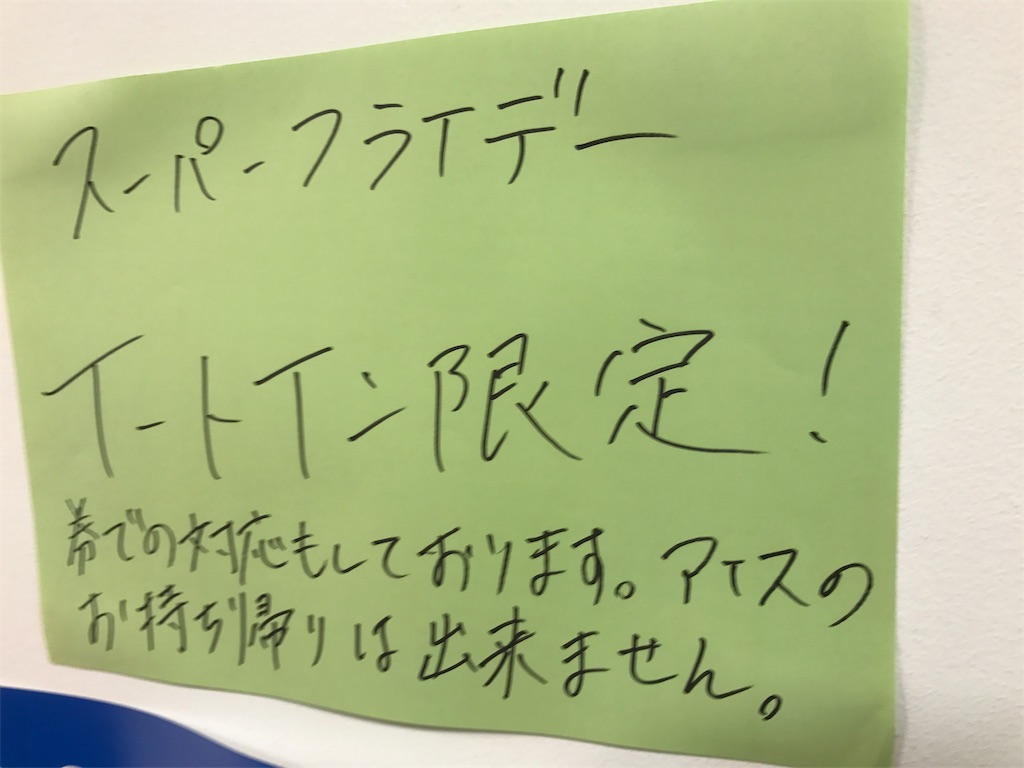 スーパーフライデー
イートイン限定!
券での対応もしております。アイスの
お持ち帰りは出来ません。